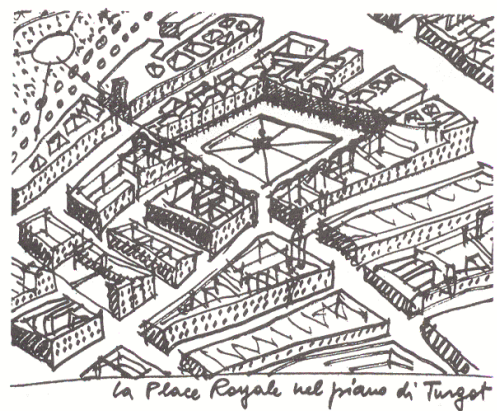 la Place Royale nel piano di Turgot